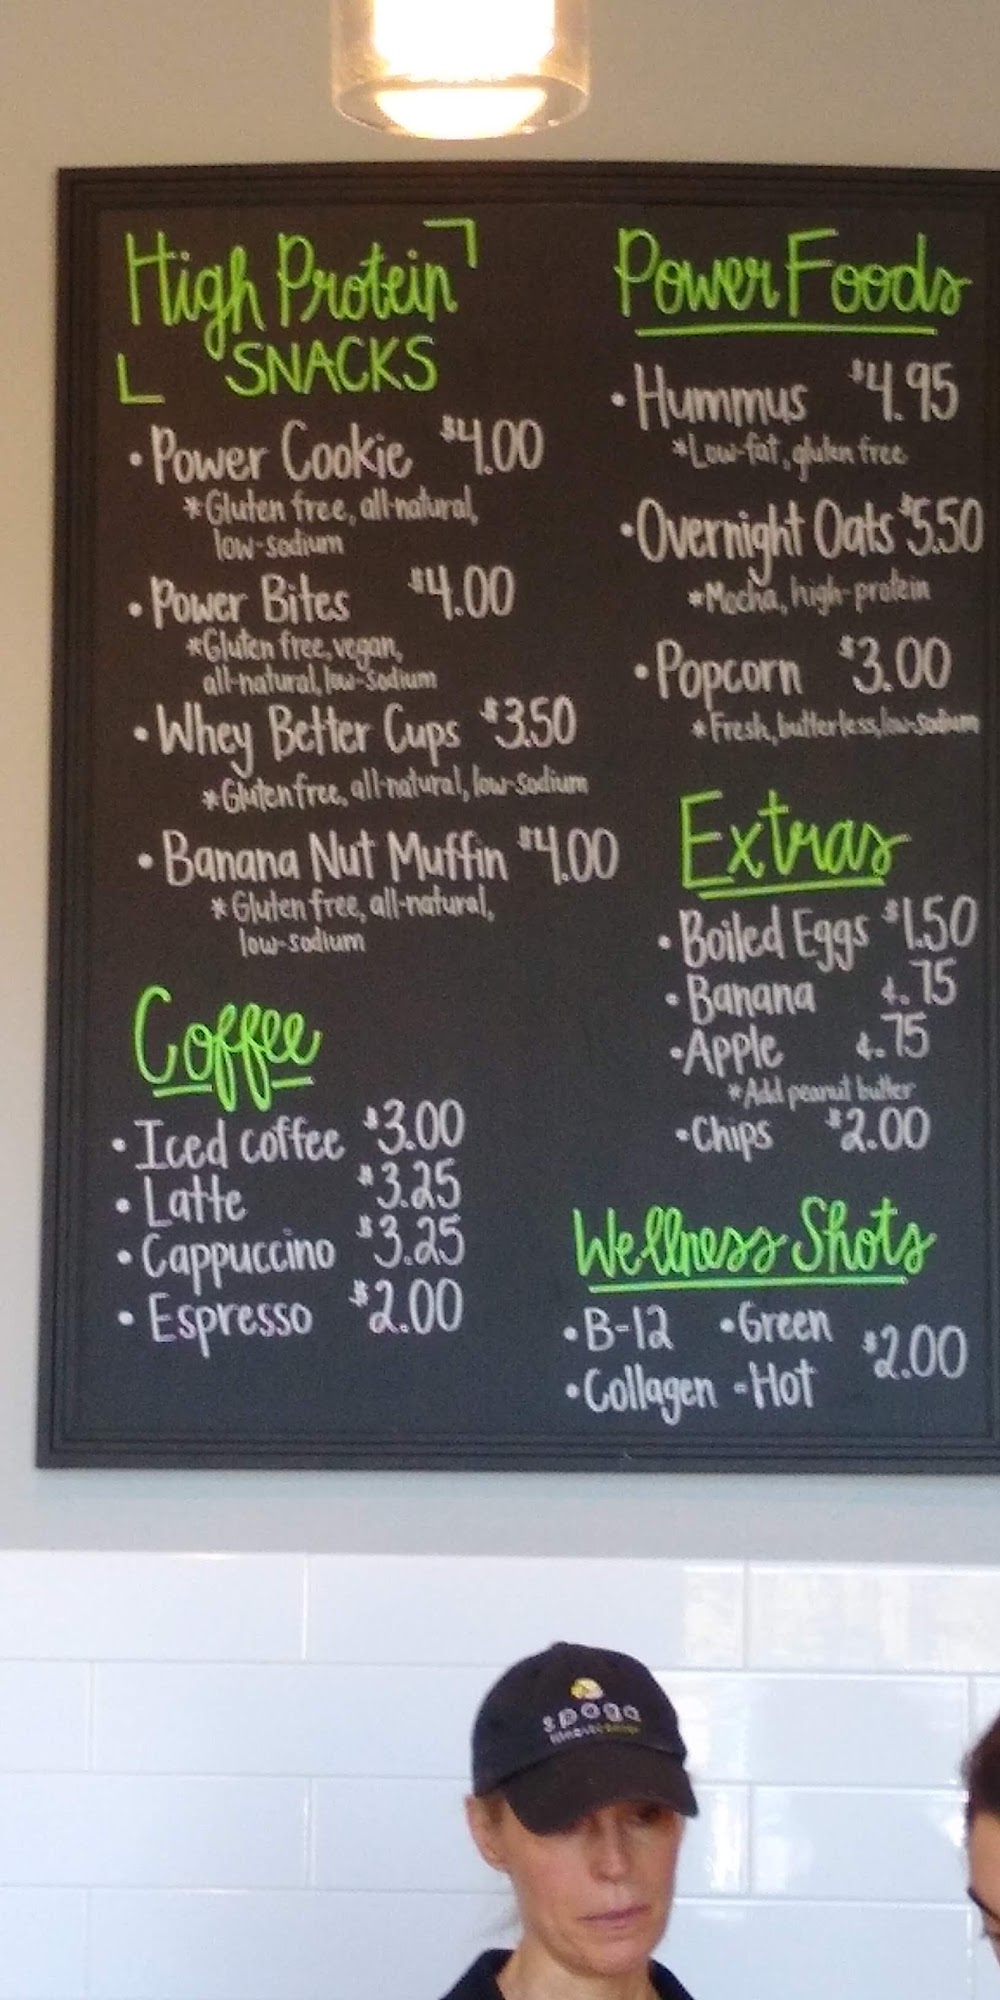 High Protein
SNACKS
• Power Cookie $4.00
*Gluten free, all-natural,
low-sodium
• Power Bites $4.00
*Gluten free, vegan,
all-natural, low-sodium
• Whey Better Cups $3.50
*Gluten free, all-natural, low-sodium
• Banana Nut Muffin $4.00
*Gluten free, all-natural,
low-sodium
Coffee
• Iced coffee $3.00
• Latte $3.25
• Cappuccino $3.25
• Espresso $2.00
Power Foods
• Hummus $4.95
*Low-fat, gluten free
• Overnight Oats $5.50
*Mocha, high-protein
• Popcorn $3.00
*Fresh, butterless, low-sodium
Extras
• Boiled Eggs $1.50
• Banana ¢.75
• Apple ¢.75
*Add peanut butter
• Chips $2.00
Wellness Shots
• B-12 • Green
$2.00
• Collagen - Hot
spoga